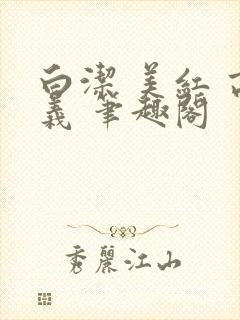 白潔 美紅 高
義 筆趣閣
秀麗江山